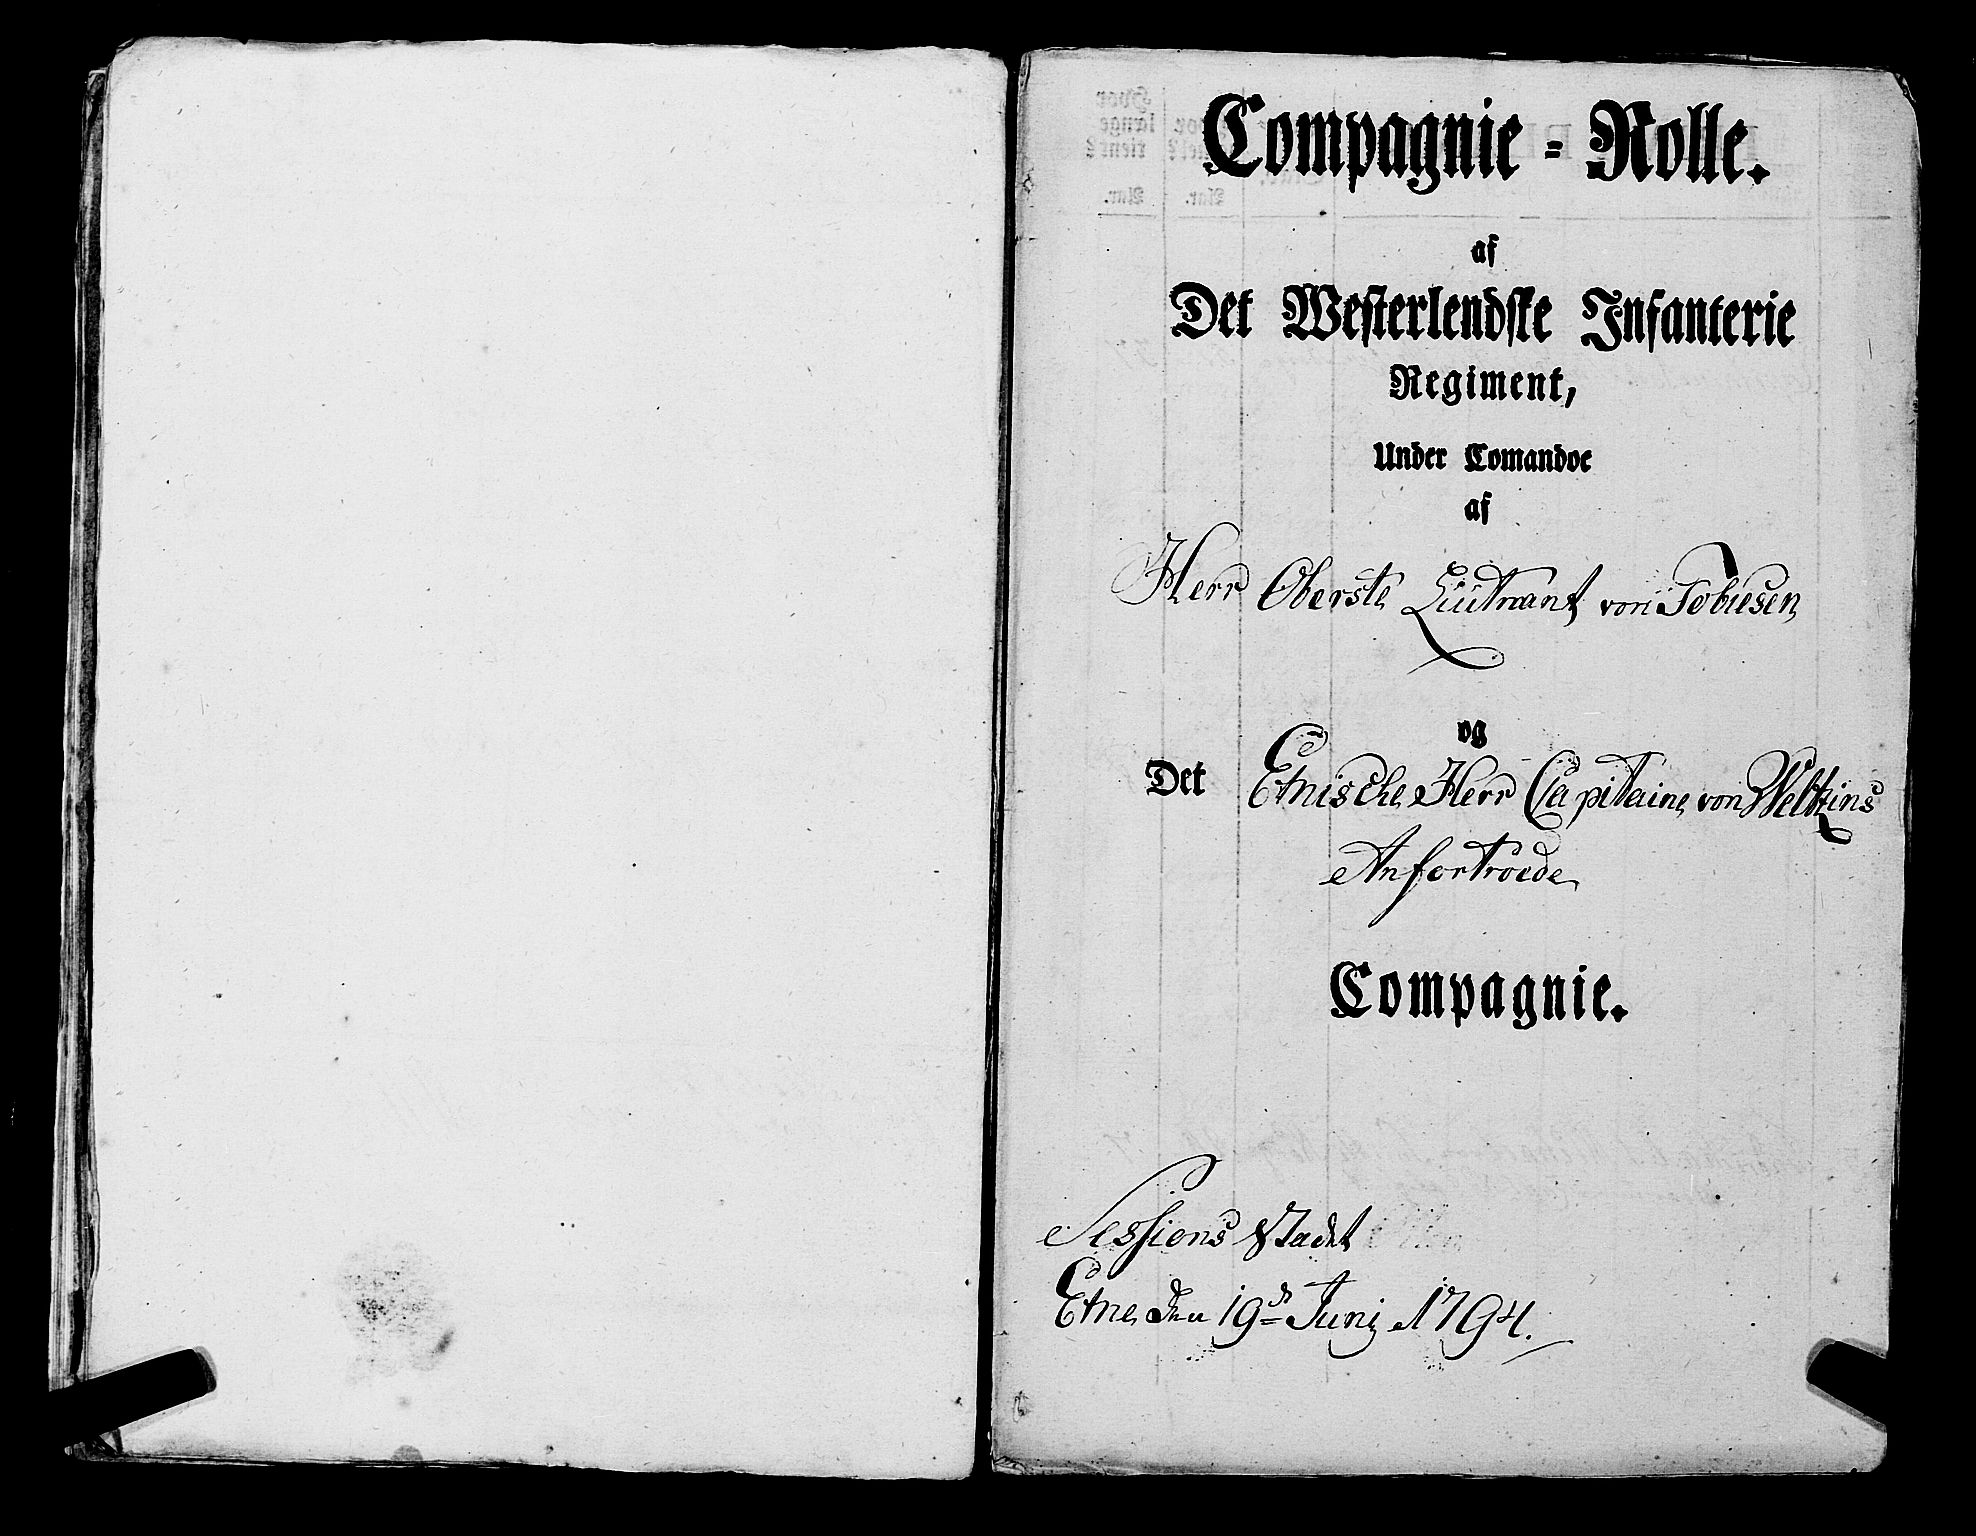 Compagnie = Rolle.
af
Det Westerlendske Infanterie
Regiment,
Under Comandoe
af
Herr Oberste Liütnant von Tobiesen
og
Det Etnische Herr Capitaine von Weltzins
Anfortroede
Compagnie.
Sessions Stadet
Etne den 19de Junj 1794.